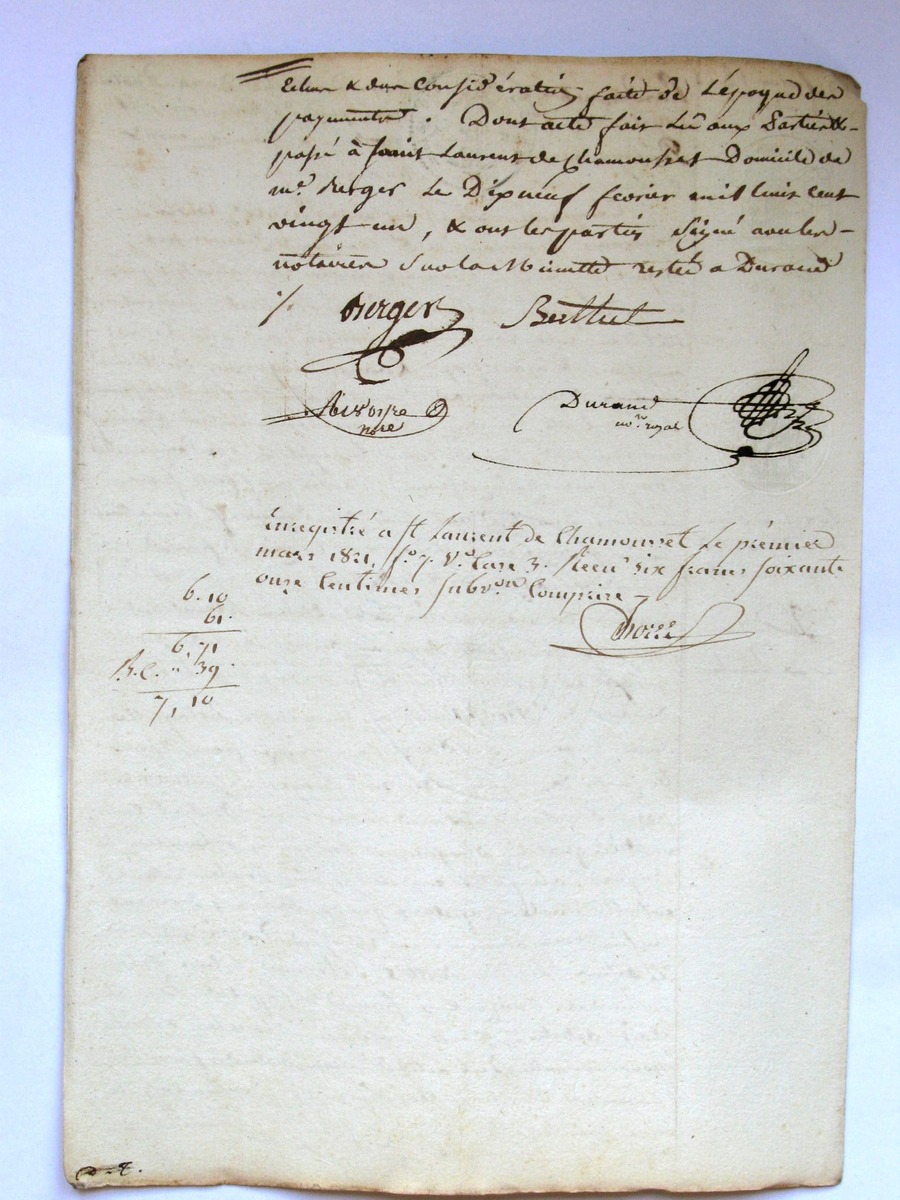 & considération faite de L'époque des
payements. Dont acte fait Lû aux Parties &
passé à saint Laurent de Chamousset Domicile de
me. Berger Le Dixneuf fevrier mil huit cent
vingt un, & ont les parties Signé avec les
notaires Sur la Minutte restée a Durand
/. Berger Berthet
nore
Durand
nore. royal
Enregistré a st Laurent de Chamousset le prémier
mars 1821, fo. 7. Vo. Case 3. Recu six francs soixante
onze Centimes Subv.on Comprise
6. 10
61.
6. 71
39
7, 10